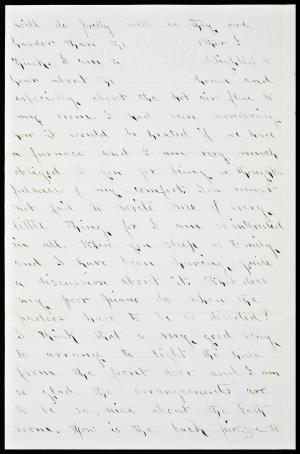 will do pretty well as they are
harder than the other I
think. I am so delighted to
hear about the house and
especially about the hot air flue to
my room I had been wondering
how it would be heated if we have
a furnace and I am very much
obliged to you for being so thought-
fulness of my comfort. You must
not fail to write me of every
little thing for I am so interested
in all. Where you sleep as Emily
and I have been having quite
a discussion about it. What does
my poor piano do when the
parlors have to be so deserted?
I think that a very good way
to arrange to light the hall
from the front door and I am
so glad the arrangements are
to be so nice about the bath
room. How is the back piazza to